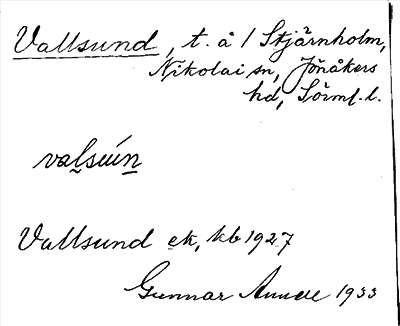 Vallsund, t. å / Stjärnholm,
Nikolai sn, Jönåkers
hd, Sörml. l.
valsún
Vallsund ek, kb 1927
Gunnar 1933